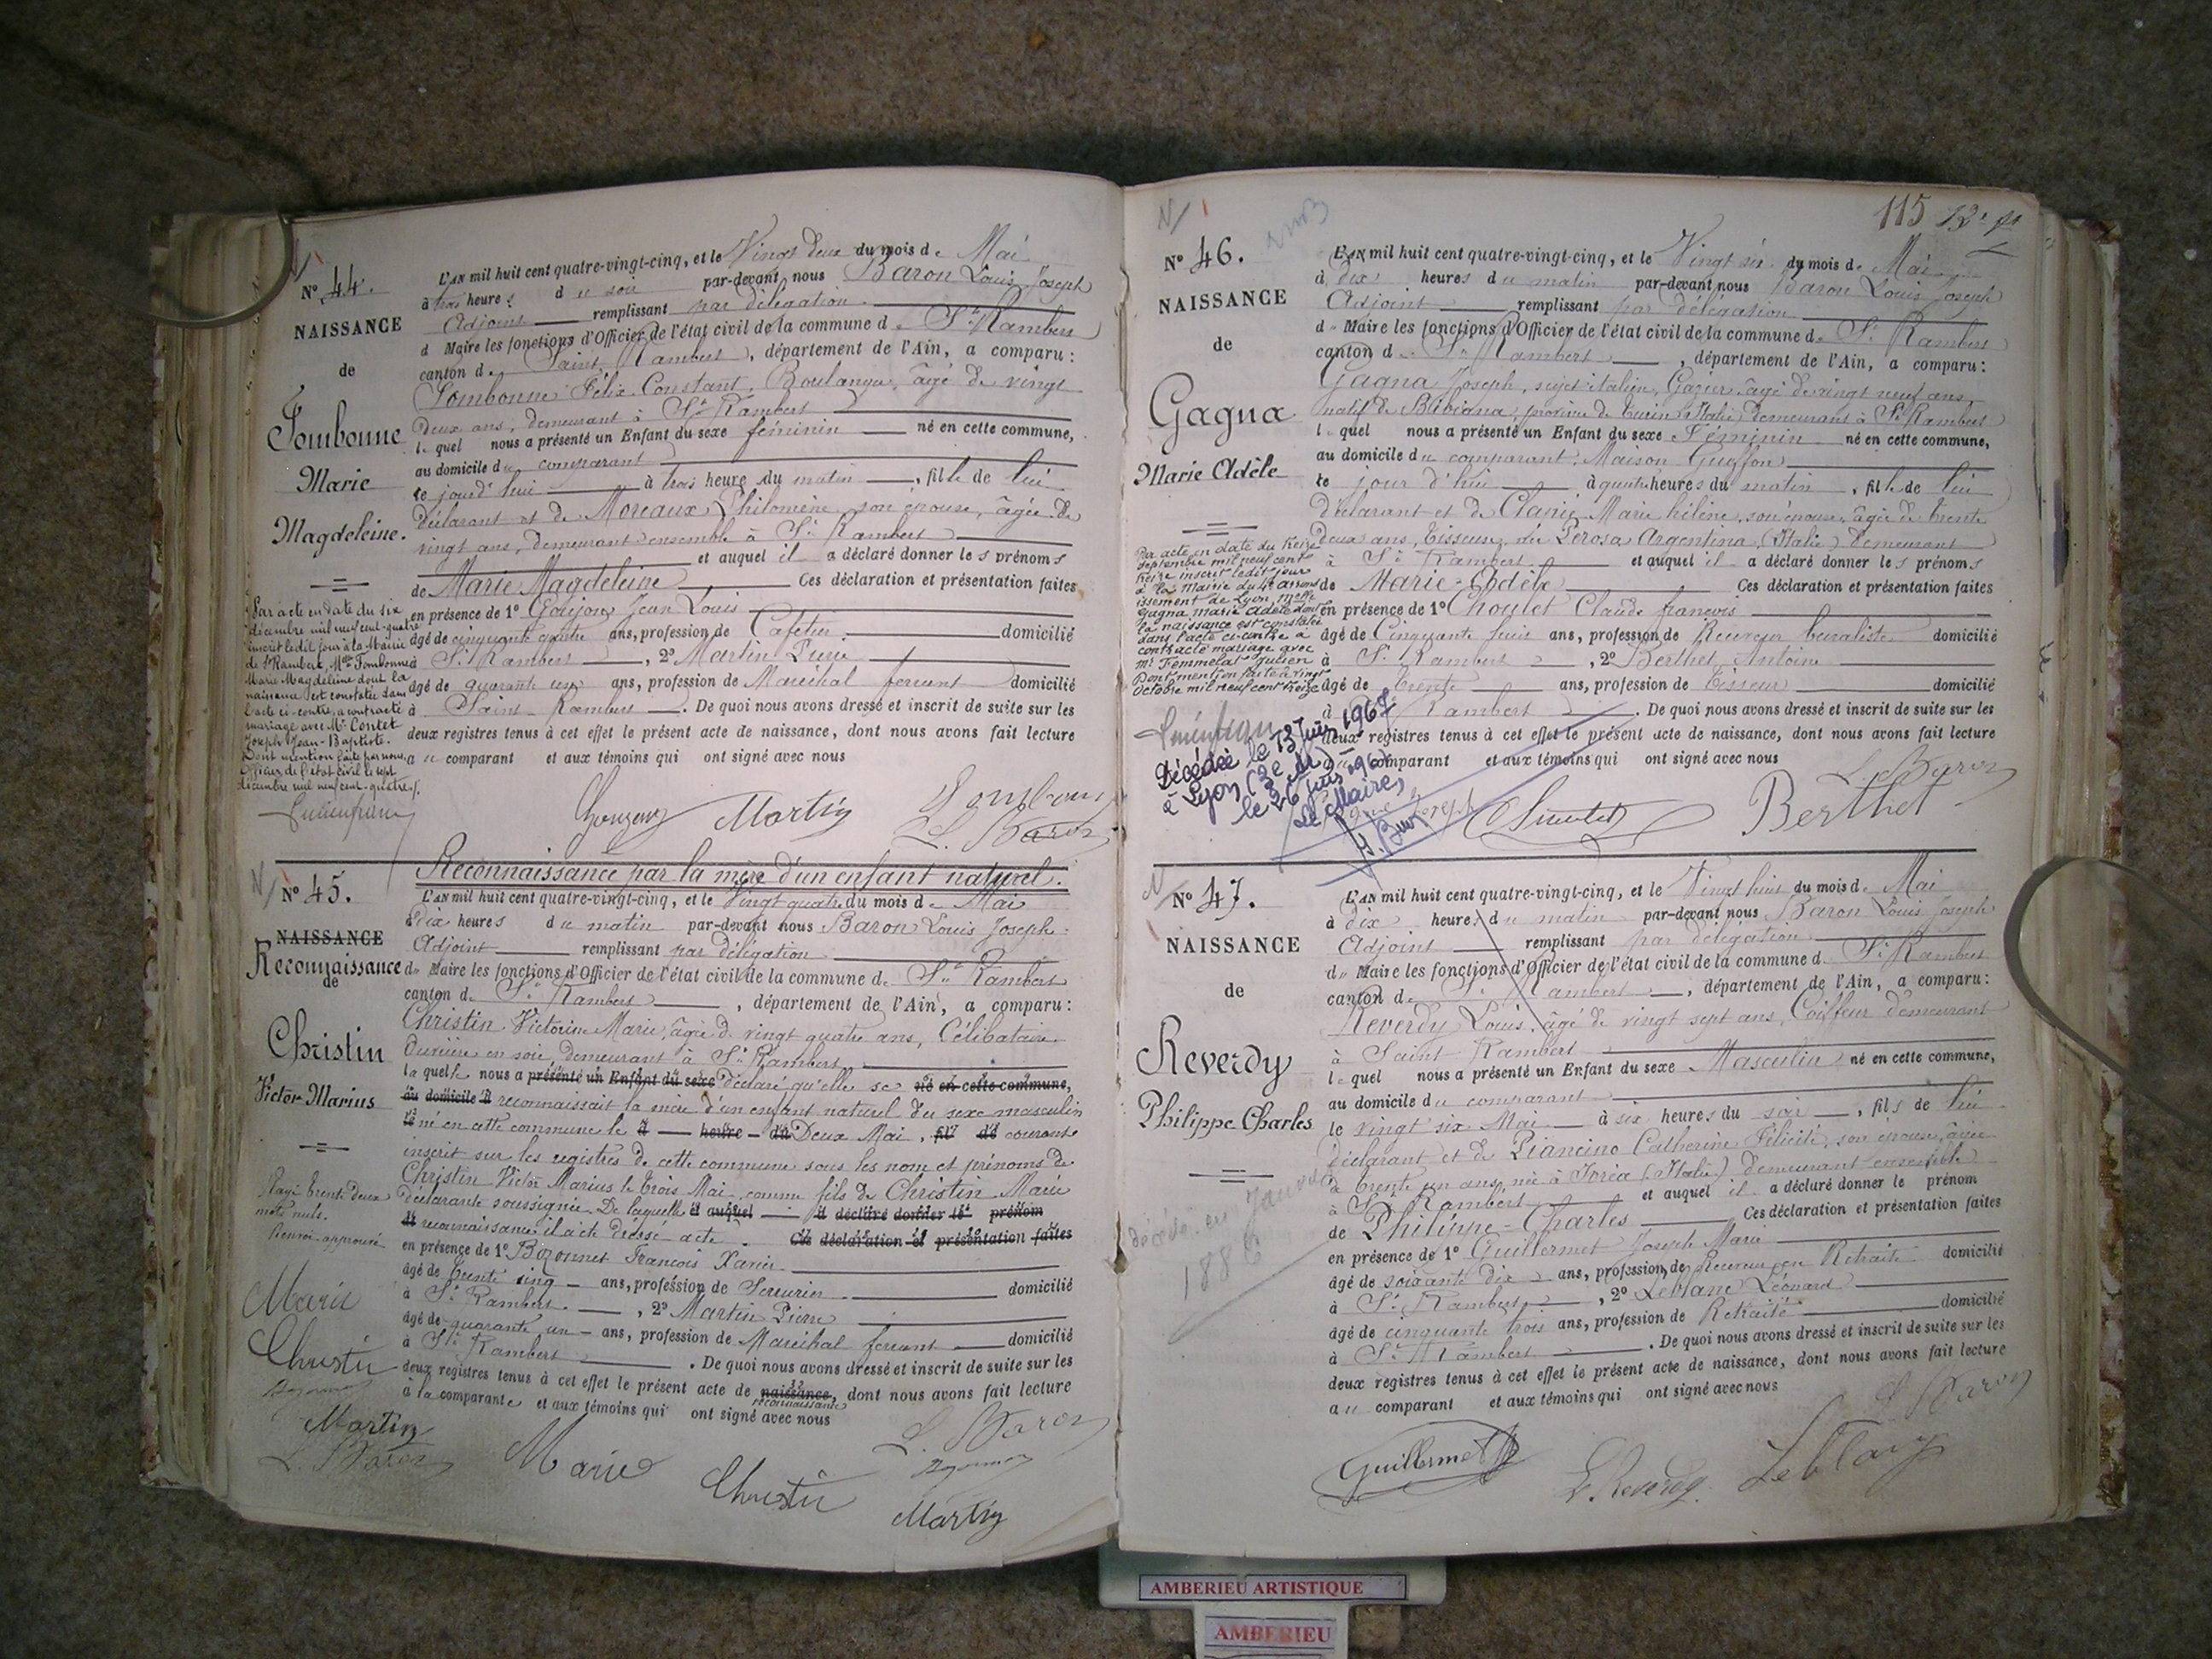 N° 44.
NAISSANCE
de
Tombonne
Marie
Magdeleine.
Par acte en date du six
décembre mil neuf cent quatre
inscrit ledit jour à la Mairie
de St Rambert, Mlle Tombonne
Marie Magdeleine dont la
naissance est constatée dans
l'acte ci-contre, a contracté
mariage avec Mr Contet
Joseph Jean-Baptiste.
Dont mention faite par nous,
Officier de l'état civil le sept
décembre mil neuf cent quatre.
L'AN mil huit cent quatre-vingt-cinq, et le Vingt deux du mois de Mai
à trois heures du soir par-devant nous Baron Louis Joseph
Adjoint remplissant par délégation
d Maire les fonctions d'Officier de l'état civil de la commune de St Rambert
canton de Saint Rambert, département de l'Ain, a comparu :
Tombonne Félix Constant, Boulanger, âgé de vingt
deux ans, demeurant à St Rambert
lequel nous a présenté un Enfant du sexe féminin né en cette commune,
au domicile du comparant
ce jourd'hui à trois heure du matin, fille de lui
déclarant et de Moreaux Philomène son épouse, âgée de
vingt ans, demeurant ensemble à St Rambert
et auquel il a déclaré donner les prénoms
de Marie Magdeleine Ces déclaration et présentation faites
en présence de 1° Goujon Jean Louis
âgé de cinquante quatre ans, profession de Cafetier domicilié
à St Rambert, 2° Martin Pierre
âgé de quarante un ans, profession de Maréchal ferrant domicilié
à Saint-Rambert. De quoi nous avons dressé et inscrit de suite sur les
deux registres tenus à cet effet le présent acte de naissance, dont nous avons fait lecture
au comparant et aux témoins qui ont signé avec nous
Martin
L. Baron
Reconnaissance par la mère d'un enfant naturel.
N° 45.
NAISSANCE
Reconnaissance
de
Christin
Victor Marius
Rayé trente deux
mots nuls.
Renvoi approuvé
Marie
Christin
Martin
L. Baron
L'AN mil huit cent quatre-vingt-cinq, et le Vingt quatre du mois de Mai
à dix heures du matin par-devant nous Baron Louis Joseph
Adjoint remplissant par délégation
du Maire les fonctions d'Officier de l'état civil de la commune de St Rambert
canton de St Rambert, département de l'Ain, a comparu :
Christin Victorine Marie, âgée de vingt quatre ans, Célibataire
Ouvrière en soie, demeurant à St Rambert
laquelle nous a présenté un Enfant du sexe déclaré qu'elle se né en cette commune,
au domicile d reconnaissait la mère d'un enfant naturel du sexe masculin
le né en cette commune le à heure du Deux Mai, fil de courant
inscrit sur les registres de cette commune sous les nom et prénoms de
Christin Victor Marius le trois Mai comme fils de Christin Marie
déclarante soussignée. De laquelle et auquel il a déclaré donner le prénom
de reconnaissance il a été dressé acte. Ces déclaration et présentation faites
en présence de 1° Bozonnet François Xavier
âgé de trente cinq ans, profession de Serrurier domicilié
à St Rambert, 2° Martin Pierre
âgé de quarante un ans, profession de Maréchal ferrant domicilié
à St Rambert. De quoi nous avons dressé et inscrit de suite sur les
deux registres tenus à cet effet le présent acte de naissance, dont nous avons fait lecture
reconnaissance
à la comparante et aux témoins qui ont signé avec nous
Marie
Christin
L. Baron
Martin
115
N° 46.
NAISSANCE
de
Gagna
Marie Adèle
Par acte en date du treize
septembre mil neuf cent
treize inscrit ledit jour
à la Mairie du 4e arrond
issement de Lyon, Melle
Gagna Marie Adèle dont
la naissance est constatée
dans l'acte ci-contre a
contracté mariage avec
Mr Femmelat Julien
Dont mention faite le vingt
Octobre mil neuf cent treize
Décédée le 13 Juin 1967
à Lyon (3e Ar)
le 26 Juin 1967
Le Maire,
L'AN mil huit cent quatre-vingt-cinq, et le Vingt six du mois de Mai
à dix heures du matin par-devant nous Baron Louis Joseph
Adjoint remplissant par délégation
du Maire les fonctions d'Officier de l'état civil de la commune de St Rambert
canton de St Rambert, département de l'Ain, a comparu :
Gagna Joseph, sujet italien, Gazier, âgé de vingt neuf ans,
natif de Bibiana, province de Turin (Italie) demeurant à St Rambert
lequel nous a présenté un Enfant du sexe Féminin né en cette commune,
au domicile du comparant, Maison Guffon
ce jour d'hui à quatre heures du matin, fille de lui
déclarant et de Clanie Marie hélène, son épouse, âgée de trente
deux ans, Tisseuse, née Perosa Argentina (Italie) demeurant
à St Rambert et auquel il a déclaré donner les prénoms
de Marie-Adèle Ces déclaration et présentation faites
en présence de 1° Choulet Claude françois
âgé de Cinquante huit ans, profession de Receveur buraliste domicilié
à St Rambert, 2° Berthet Antoine
âgé de trente ans, profession de tisseur domicilié
à St Rambert. De quoi nous avons dressé et inscrit de suite sur les
deux registres tenus à cet effet le présent acte de naissance, dont nous avons fait lecture
au comparant et aux témoins qui ont signé avec nous
L. Baron
Berthet
N° 47.
NAISSANCE
de
Reverdy
Philippe Charles
décédé en Janvier
1886
L'AN mil huit cent quatre-vingt-cinq, et le Vingt huit du mois de Mai
à dix heures du matin par-devant nous Baron Louis Joseph
Adjoint remplissant par délégation
du Maire les fonctions d'Officier de l'état civil de la commune d St Rambert
canton de St Rambert, département de l'Ain, a comparu :
Reverdy Louis, âgé de vingt sept ans, Coiffeur demeurant
à Saint Rambert
lequel nous a présenté un Enfant du sexe Masculin né en cette commune,
au domicile du comparant
le vingt six Mai à six heures du soir, fils de lui
déclarant et de Piancino Catherine Félicité, son épouse, âgée
de trente un ans, née à Ivréa (Italie) demeurant ensemble
à St Rambert et auquel il a déclaré donner le prénom
de Philippe-Charles Ces déclaration et présentation faites
en présence de 1° Guillermet Joseph Marie
âgé de soixante dix ans, profession de Receveur en Retraite domicilié
à St Rambert, 2° Leblanc Léonard
âgé de cinquante trois ans, profession de Retraité domicilié
à St Rambert. De quoi nous avons dressé et inscrit de suite sur les
deux registres tenus à cet effet le présent acte de naissance, dont nous avons fait lecture
au comparant et aux témoins qui ont signé avec nous
L. Baron
Guillermet
L. Reverdy
Leblanc
AMBERIEU ARTISTIQUE
AMBERIEU